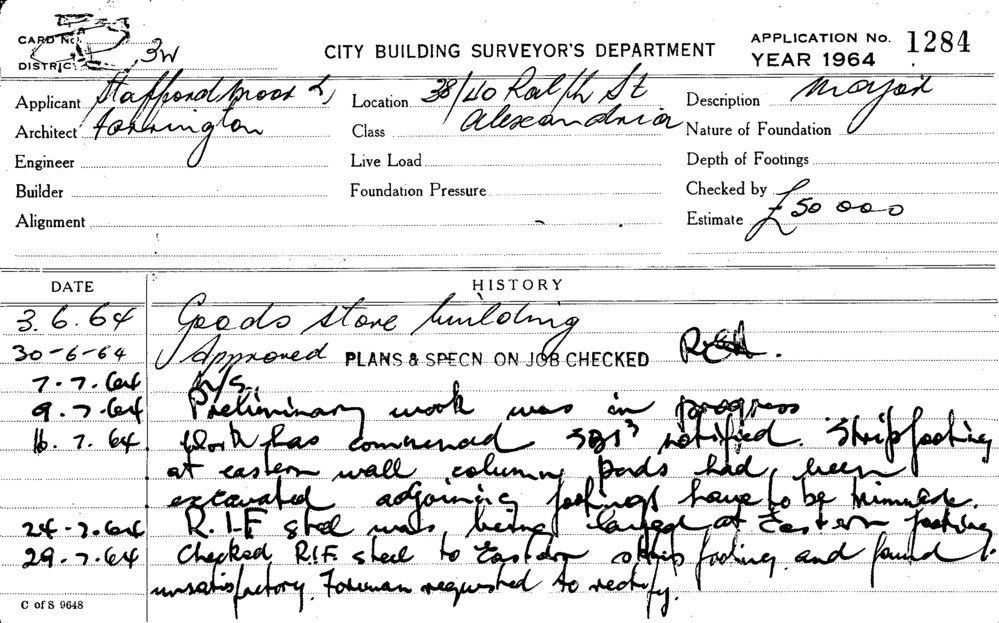 CARD No. CITY BUILDING SURVEYOR'S DEPARTMENT APPLICATION No. 1284
DISTRICT 3W YEAR 1964
Applicant Stafford Moor & Location 38/40 Ralph St Description Major
Architect Farrington Class Alexandria Nature of Foundation
Engineer Live Load Depth of Footings
Builder Foundation Pressure Checked by
Alignment Estimate £50 000
DATE HISTORY
3.6.64 Goods store building
30-6-64 Approved PLANS & SPECN ON JOB CHECKED
7-7.64 N/S.
9.7.64 Preliminary work was in progress
16.7.64 Work has commenced notified. Strip footing
at eastern wall column pads had been
excavated adjoining footings have to be trimmed.
24-7.64 R.I.F steel was being at Eastern footing
29.7.64 Checked R.I.F steel to Eastern strip footing and found
unsatisfactory. Foreman requested to rectify.
C of S 9648